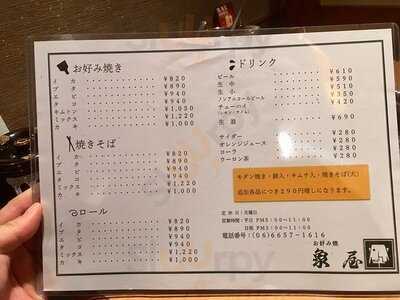 お好み焼き
イカ ¥820
ブタ ¥890
エビ ¥940
タコ ¥940
キムトン ¥1,050
ミックス ¥1,220
カキ ¥1,000
焼きそば
イカ ¥820
ブタ ¥890
エビ ¥940
タコ ¥940
ミックス ¥1,220
カキ ¥1,000
ロール
イカ ¥820
ブタ ¥890
エビ ¥940
タコ ¥940
ミックス ¥1,220
カキ ¥1,000
ドリンク
ビール ¥610
生中 ¥590
生小 ¥510
ノンアルコールビール ¥350
チューハイ ¥420
生酒 ¥690
サイダー ¥280
オレンジジュース ¥280
コーラ ¥280
ウーロン茶 ¥280
モダン焼き・餅入・キムチ入・焼きそば(大)
追加各品につき290円増しになります。
定休日:月曜日
営業時間:平日 PM5:00〜11:00
日祝 PM3:00〜11:00
電話番号:(06)6657-1616
お好み焼
泉屋